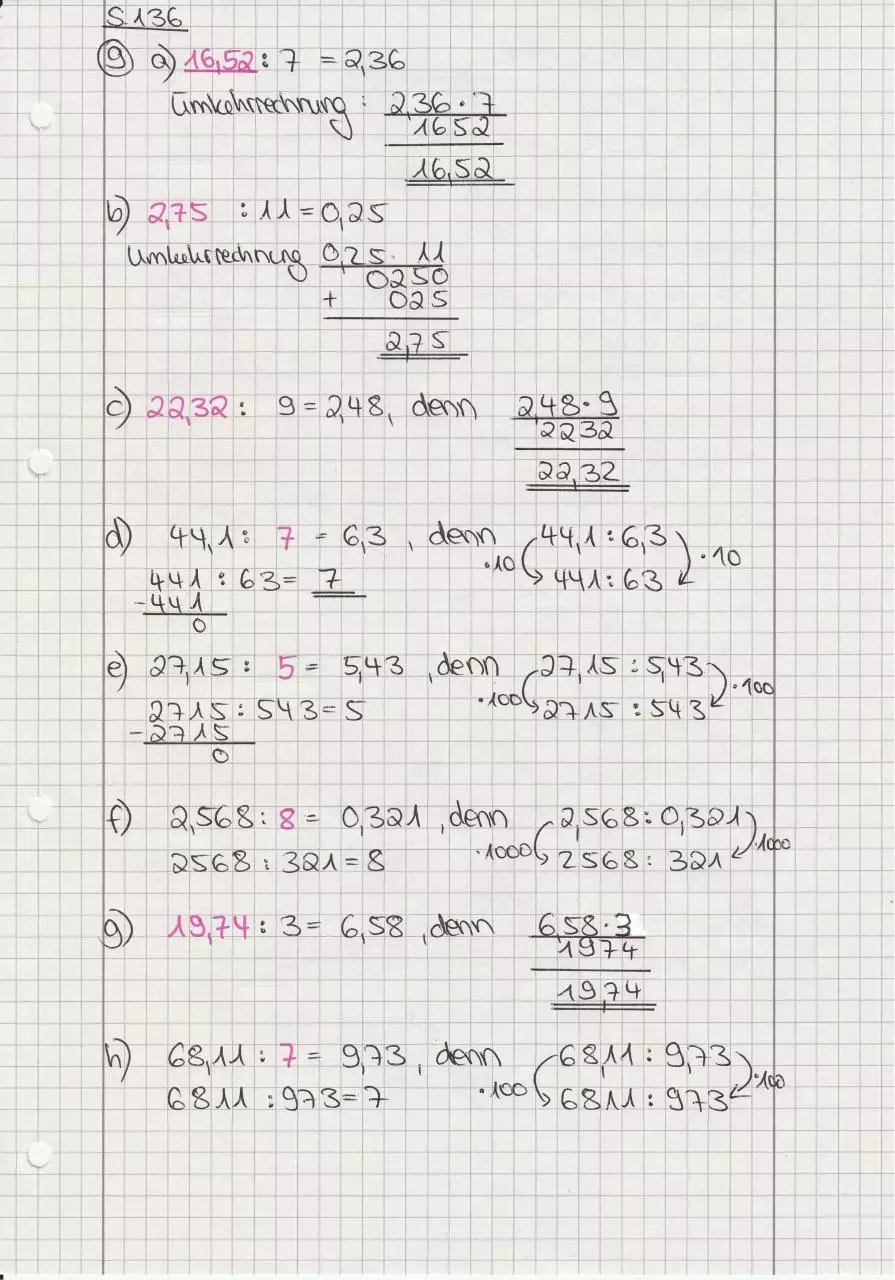 S.136
9 a) 16,52 : 7 = 2,36
Umkehrrechnung : 2,36 · 7
1652
16,52
b) 2,75 : 11 = 0,25
Umkehrrechnung 0,25 · 11
0250
+ 025
2,75
c) 22,32 : 9 = 2,48, denn 2,48 · 9
2232
22,32
d) 44,1 : 7 = 6,3 , denn 44,1 : 6,3
·10 ·10
441 : 63 = 7 441 : 63
-441
0
e) 27,15 : 5 = 5,43 , denn 27,15 : 5,43
·100 ·100
2715 : 543 = 5 2715 : 543
-2715
0
f) 2,568 : 8 = 0,321 , denn 2,568 : 0,321
·1000 ·1000
2568 : 321 = 8 2568 : 321
g) 19,74 : 3 = 6,58 , denn 6,58 · 3
1974
19,74
h) 68,11 : 7 = 9,73 , denn 68,11 : 9,73
·100 ·100
6811 : 973 = 7 6811 : 973